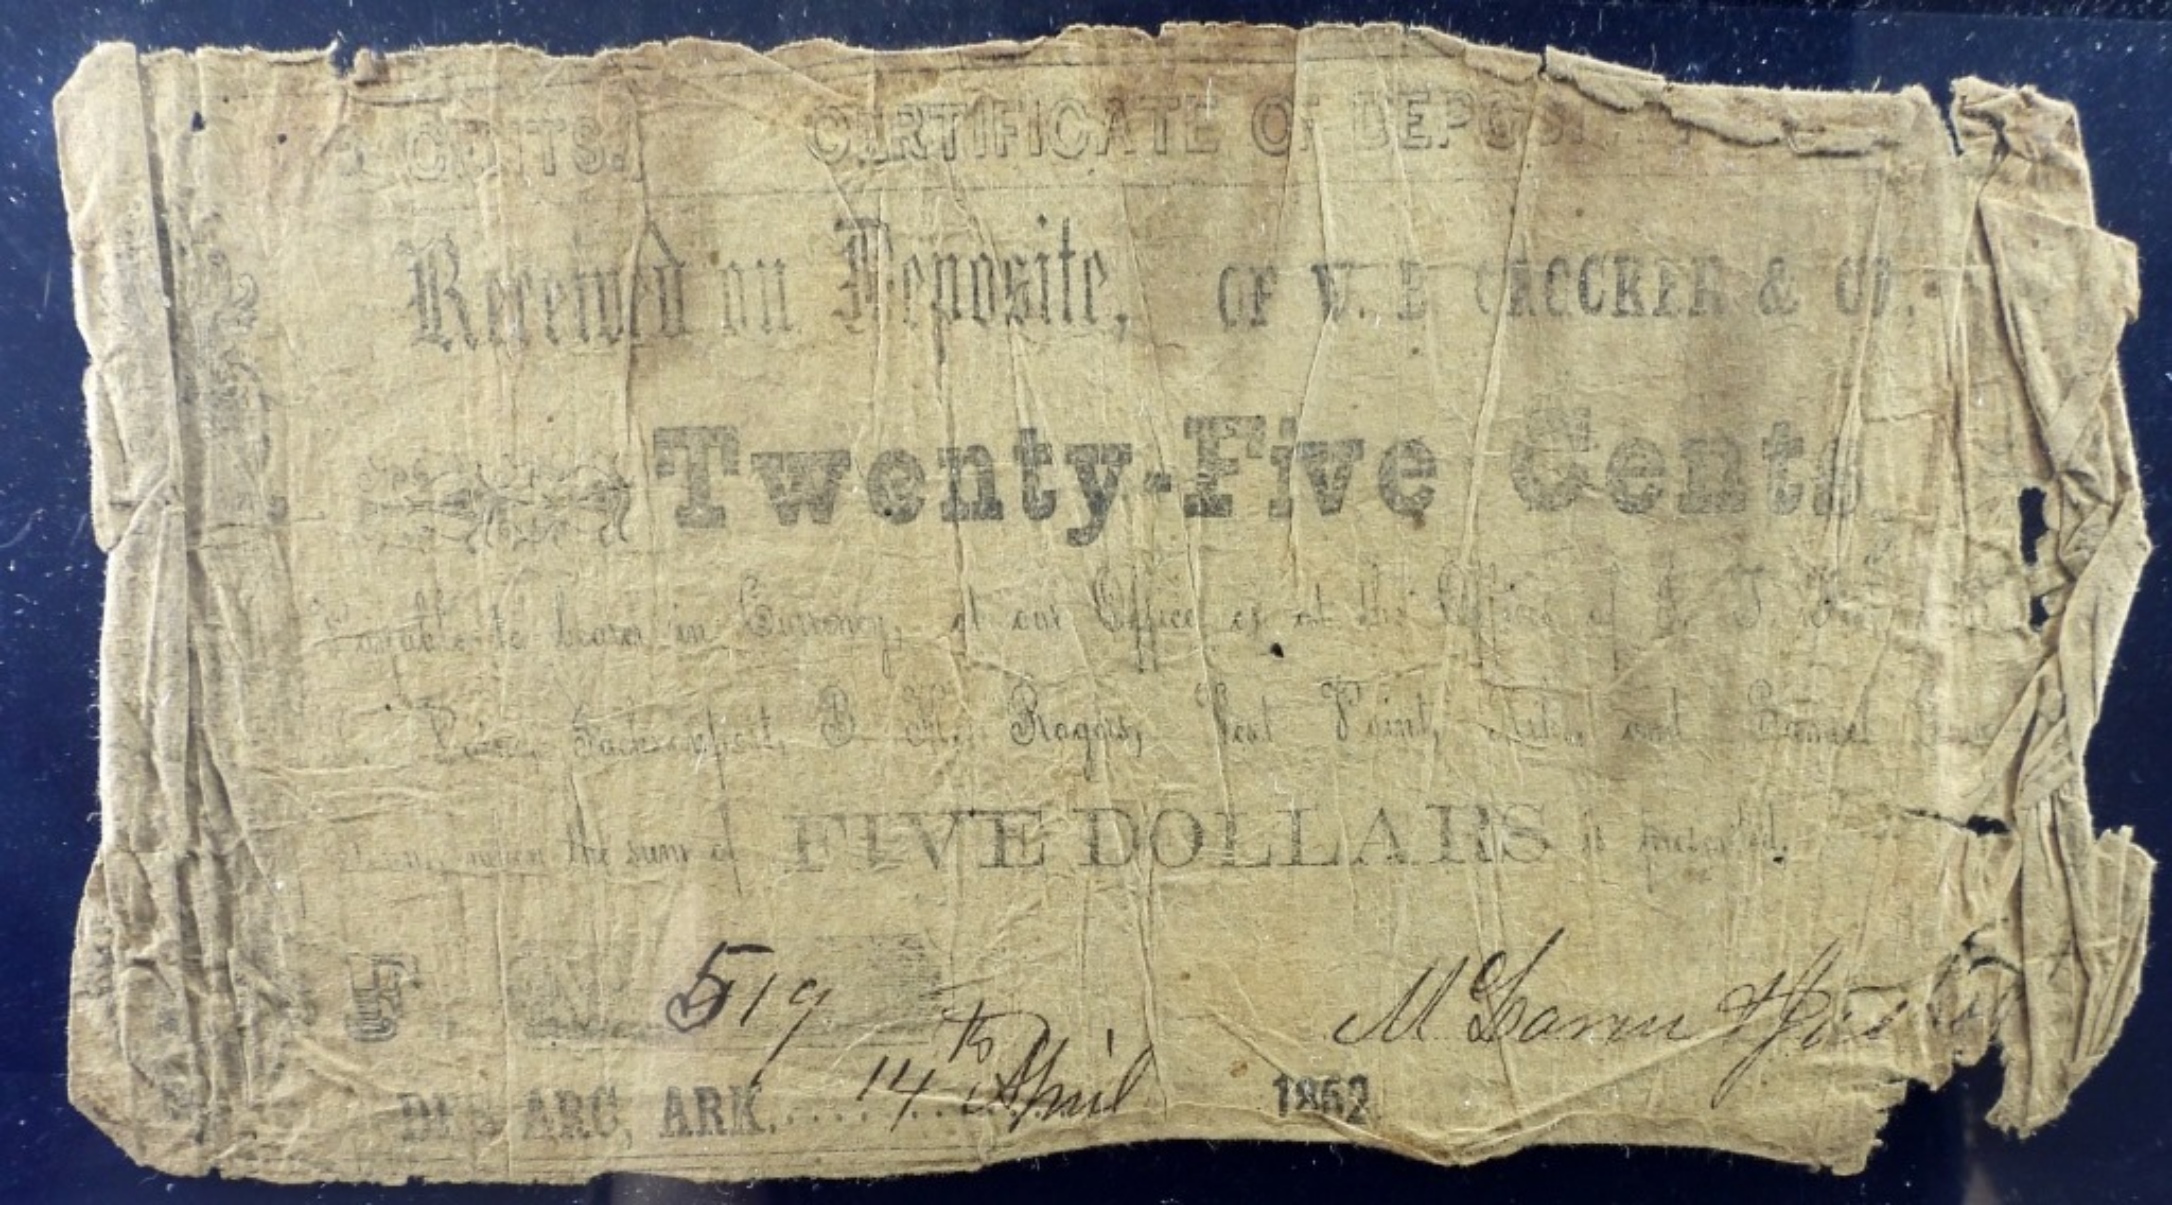 CENTS. CERTIFICATE OF DEPOSIT
Received on Deposite, OF W. B CROCKER & CO.
Twenty-Five Cents
Payable to bearer in Currency, at our Office or at the Office of J. T.
Jacksonport, B. H. Rogers, West Point, Ark., and
when the sum of FIVE DOLLARS is presented.
No 519
DES ARC, ARK. 14th April 1862